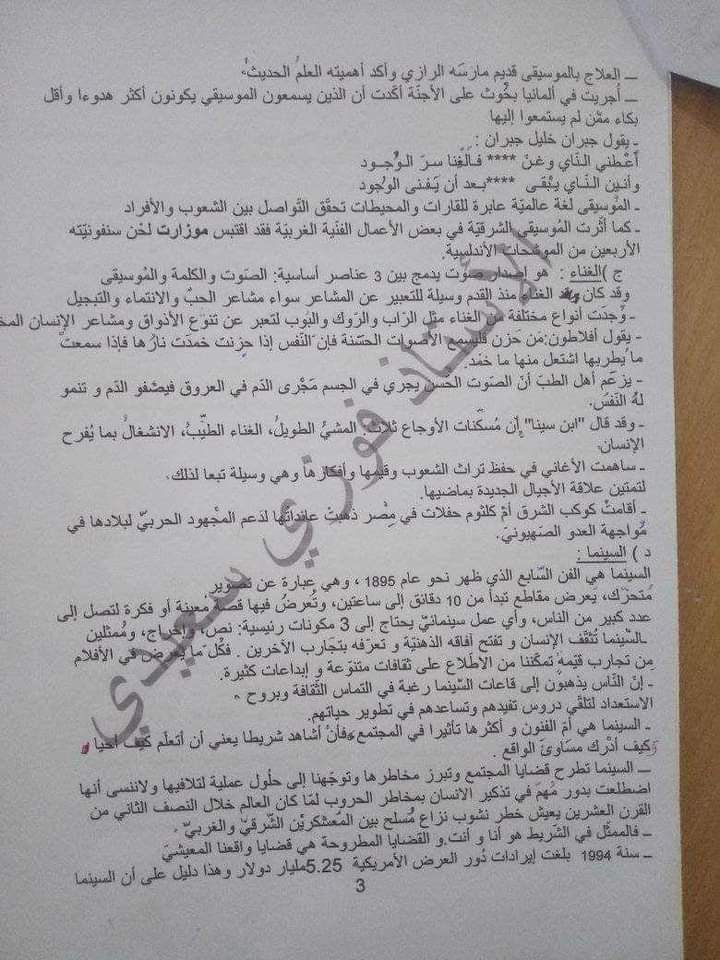 ــ العلاج بالموسيقى قديم مارسَه الرازي وأكد أهميته العلمُ الحديثُ.
ــ أجريت في ألمانيا بحُوث على الأجنّة أكّدت أن الذين يسمعون الموسيقي يكونون أكثر هدوءا وأقل
بكاء ممّن لم يستمعوا إليها
ـ يقول جبران خليل جبران :
أعْطني النّاي وغنّ **** فالغنا سرّ الوُجود
وأنين النّاي يبْقى ****بعد أن يَفنى الوُجود
ـ المُوسيقى لغة عالميّة عابرة للقارات والمحيطات تحقّق التّواصل بين الشعوب والأفراد
ـ كما أثّرت المُوسيقي الشرقيّة في بعض الأعمال الفنية الغربيّة فقد اقتبس موزارت لحْن سنفونيّته
الأربعين من الموشحات الأندلسية.
ج )الغناء : هو إصدار صوت يدمج بين 3 عناصر أساسية: الصّوت والكلمة والمُوسيقى
وقد كان الغناء منذ القدم وسيلة للتعبير عن المشاعر سواء مشاعر الحبّ والانتماء والتبجيل
ـ وُجدتْ أنواع مختلفة من الغناء مثل الرّاب والرّوك والبّوب لتعبر عن تنوّع الأذواق ومشاعر الإنسان المخ
ـ يقول أفلاطون:مَن حَزن فليسمع الأصوات الحسّنة فإن النّفس إذا حزنت خمدَت نارُها فإذا سمعت
ما يطربها اشتعل منها ما خمَد.
ـ يزعَم أهل الطبّ أنّ الصّوت الحُسن يجري في الجسم مَجْرى الدّم في العروق فيصْفو الدّم و تنمو
لهُ النّفسُ.
ـ وقد قال "ابن سينا" إن مُسكّنات الأوجاع ثلاث: المشيُ الطويلُ، الغناء الطيّبُ، الانشغالُ بما يُفرح
الإنسان.
ـ ساهمت الأغاني في حفظ تراث الشعوب وقيمها وأفكارها وهي وسيلة تبعا لذلك
لتمتين علاقة الأجيال الجديدة بماضيها.
ـ أقامتْ كوكب الشرق أمّ كلثوم حفلات في مِصْر ذهبتْ عائداتها لدَعم المجْهود الحربيّ لبلادها في
مُواجهة العدو الصّهيونيّ.
د ) السينما :
السينما هي الفن السّابع الذي ظهر نحو عام 1895 ، وهي عبارة عن تصْوير
مُتحرّك، يَعرض مقاطع تبدأ من 10 دقائق إلى ساعتين، وتُعرضُ فيها قصّة معينة أو فكرة لتصل إلى
عدد كبير من الناس، وأي عمل سينمائيّ يحتاج إلى 3 مكونات رئيسية: نص، وإخراج، ومُمثلين
ـالسّينما تُثقّف الإنسان و تفتح أفاقه الذهنيّة و تعرّفه بتجَارب الآخرين . فكُل ما يعرض في الأفلام
من تجارب قيّمة تمكّننا من الاطّلاع على ثقافات متنوّعة و إبداعات كثيرة.
ـ إنّ النّاس يذهبون إلى قاعات السّينما رغبة في التماس الثّقافة وبروح
الاستعداد لتلقّي دروس تفيدهم وتساعدهم في تطوير حياتهم.
ـ السينما هي أمّ الفنون و أكثرها تأثيرا في المجتمع فأنْ أشاهد شريطا يعني أن أتعلّم كيف أحيا
وكيف أدْرك مسَاوئ الواقع .
ــ السينما تطرح قضايا المجتمع وتبرز مخاطرها وتوجّهنا إلى حلُول عملية لتلافيها ولاننسى أنها
اضطلعت بدور مُهمّ في تذكير الانسان بمخاطر الحروب لمّا كان العالم خلال النصف الثاني من
القرن العشرين يعيش خطر نشوب نزاع مُسلح بين المّعسْكريْن الشّرقيّ والغربيّ
ــ فالممثّل في الشّريط هو أنا و أنت. و القضايا المطروحة هي قضايا واقعنا المعيشيّ
ــ سنة 1994 بلغت إيرادات دُور العرض الأمريكية 5.25مليار دولار وهذا دليل على أن السينما
3
الأستاذ فوزي سعيدي